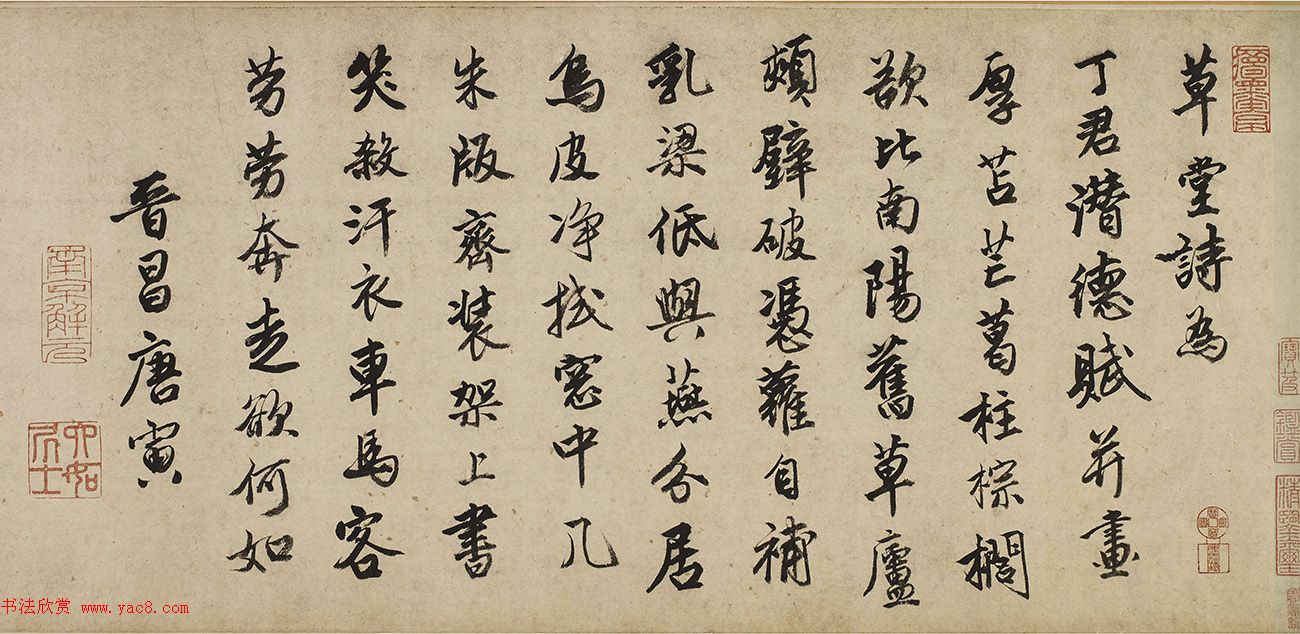 草堂詩為
丁君潛德賦并畫
厚苫茫葛柱棕櫚
欲比南陽舊草廬
頹壁破憑蘿自補
乳梁低與燕分居
烏皮净拭窓中几
朱版齊装架上書
笑殺汗衣車馬客
勞勞奔走欲何如
晉昌唐寅
南京解元
六如居士
书法欣赏 www.yac8.com